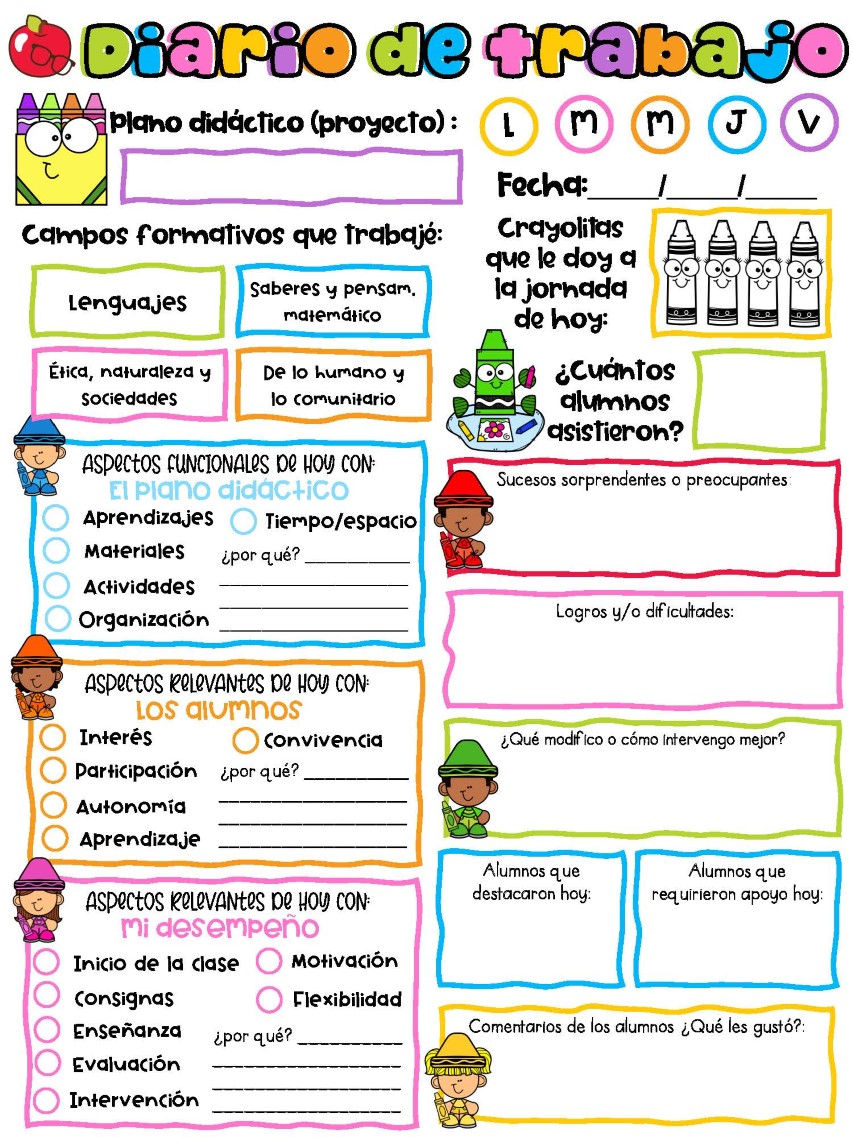 Diario de trabajo
Plano didáctico (proyecto) :
L M M J V
Fecha:______/______/______
Campos formativos que trabajé:
Lenguajes
Saberes y pensam.
matemático
Ética, naturaleza y
sociedades
De lo humano y
lo comunitario
Crayolitas
que le doy a
la jornada
de hoy:
¿Cuántos
alumnos
asistieron?
Aspectos funcionales de hoy con:
El plano didáctico
Aprendizajes
Tiempo/espacio
Materiales
¿por qué? ____________
Actividades
Organización
Aspectos relevantes de hoy con:
Los alumnos
Interés
Convivencia
Participación
¿por qué? ____________
Autonomía
Aprendizaje
Aspectos relevantes de hoy con:
mi desempeño
Inicio de la clase
Motivación
Consignas
Flexibilidad
Enseñanza
¿por qué? ____________
Evaluación
Intervención
Sucesos sorprendentes o preocupantes:
Logros y/o dificultades:
¿Qué modifico o cómo intervengo mejor?
Alumnos que
destacaron hoy:
Alumnos que
requirieron apoyo hoy:
Comentarios de los alumnos ¿Qué les gustó?: